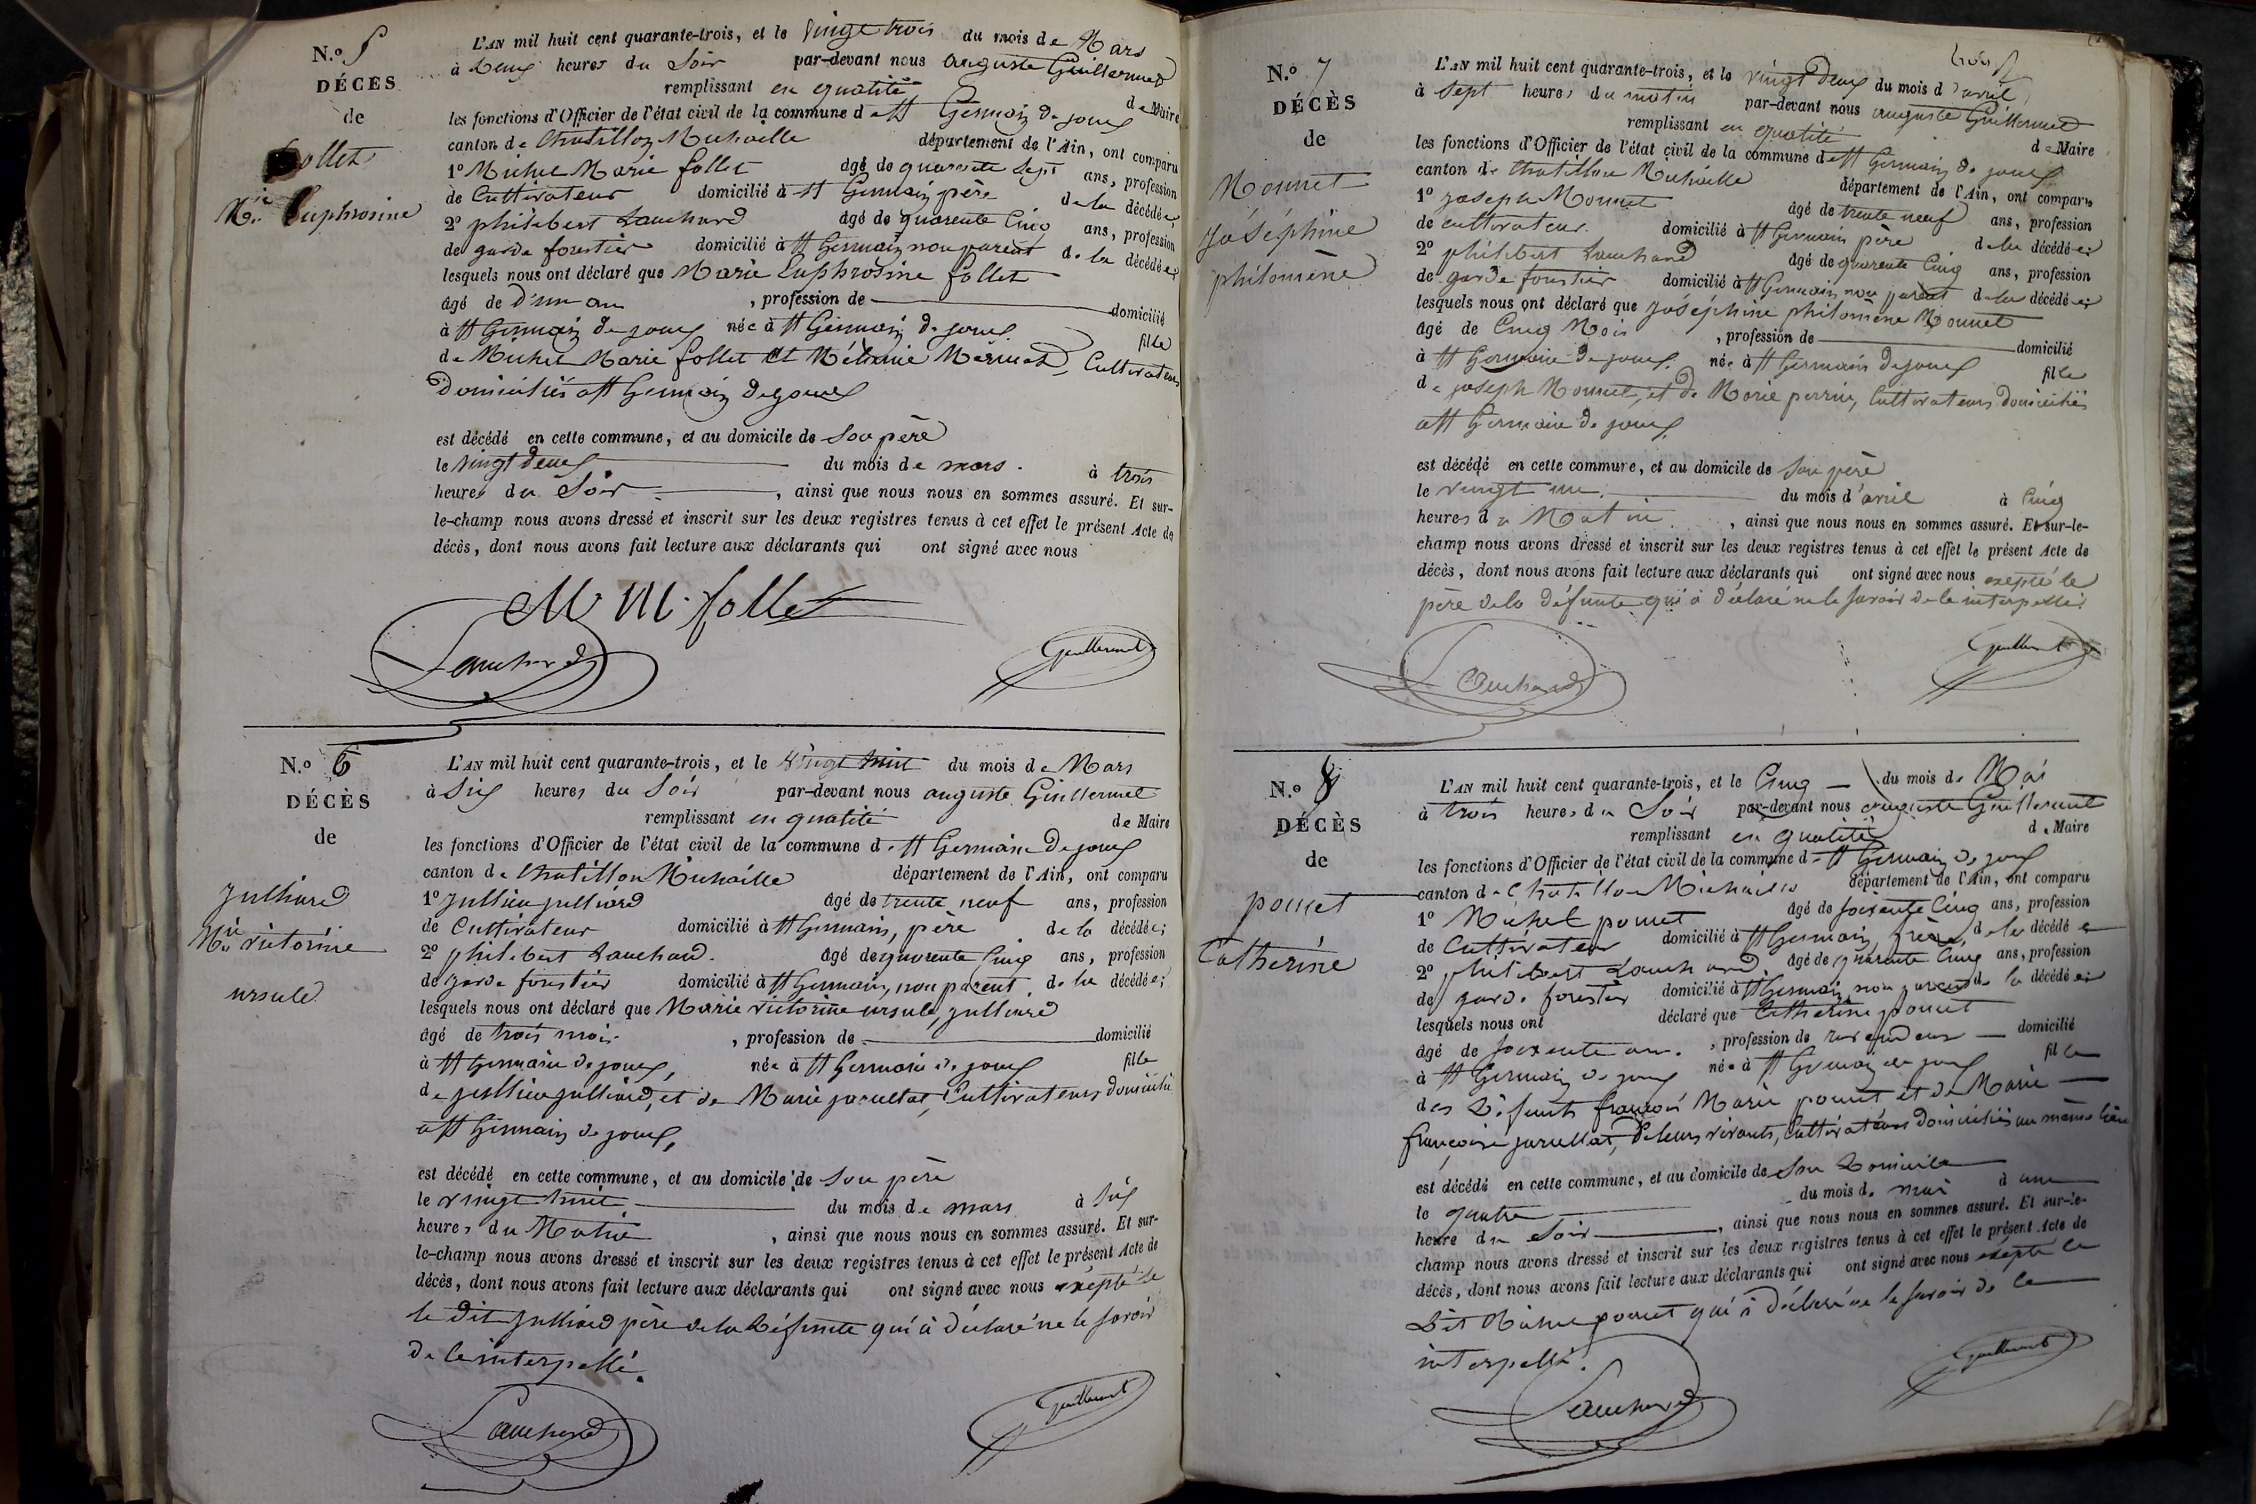 N.o 5
DÉCÈS
de
follet
M.ie Euphrosine
L'AN mil huit cent quarante-trois, et le vingt trois du mois de Mars
à deux heures du Soir par-devant nous auguste Guillermet
remplissant en qualité de Maire
les fonctions d'Officier de l'état civil de la commune de st Germain de joux
canton de Chatillon Michaille département de l'Ain, ont comparu
1o Michel Marie follet âgé de quarente Sept ans, profession
de Cultivateur domicilié à st Germain père de la décédée;
2o philibert Lauchard âgé de quarente Cinq ans, profession
de garde forestier domicilié à st Germain, non parent de la décédée;
lesquels nous ont déclaré que Marie Euphrosine follet
âgé de d'un an , profession de domicilié
à st Germain de joux née à st Germain de joux fille
de Michel Marie follet et Mélanie Mermet, Cultivateurs
Domiciliés a st Germain de joux
est décédé en cette commune, et au domicile de Son père
le vingt deux du mois de mars. à trois
heures du Soir , ainsi que nous nous en sommes assuré. Et sur-
le-champ nous avons dressé et inscrit sur les deux registres tenus à cet effet le présent Acte de
décès, dont nous avons fait lecture aux déclarants qui ont signé avec nous
M M. follet
Lauchard Guillermet
N.o 6
DÉCÈS
de
julliard
M.ie victorine
ursule
L'AN mil huit cent quarante-trois, et le vingt huit du mois de Mars
à Six heures du Soir par-devant nous auguste Guillermet
remplissant en qualité de Maire
les fonctions d'Officier de l'état civil de la commune de st Germain De joux
canton de Chatillon Michaille département de l'Ain, ont comparu
1o jullien julliard âgé de trente neuf ans, profession
de Cultivateur domicilié à st Germain, père de la décédée;
2o philibert Lauchard. âgé de quarente Cinq ans, profession
de garde forestier domicilié à st Germain, non parent. de la décédée;
lesquels nous ont déclaré que Marie victorine ursule, julliard
âgé de trois mois , profession de domicilié
à st Germain de joux, née à st Germain de joux fille
de jullien julliard, et de Marie jarullat, Cultivateurs domiciliés
a st Germain de joux,
est décédé en cette commune, et au domicile de Son père
le vingt huit du mois de mars à Six
heures du Matin , ainsi que nous nous en sommes assuré. Et sur-
le-champ nous avons dressé et inscrit sur les deux registres tenus à cet effet le présent Acte de
décès, dont nous avons fait lecture aux déclarants qui ont signé avec nous exépté le
le dit julliard père de la Défunte qui à déclaré ne le savoir
de ce interpellé.
Lauchard Guillermet
trois
N.o 7
DÉCÈS
de
Monnet
joséphine
philomène
L'AN mil huit cent quarante-trois, et le vingt deux du mois d'avril
à Sept heures du matin par-devant nous auguste Guillermet
remplissant en qualité de Maire
les fonctions d'Officier de l'état civil de la commune de st Germain de joux
canton de Chatillon Michaille département de l'Ain, ont comparu
1o joseph Monnet âgé de trente neuf ans, profession
de cultivateur. domicilié à st Germain père de la décédée;
2o philibert Lauchard âgé de quarente Cinq ans, profession
de garde forestier domicilié à st Germain, non parent de la décédée;
lesquels nous ont déclaré que joséphine philomène Monnet
âgé de Cinq Mois , profession de domicilié
à st Germain de joux. née à st Germain de joux fille
de joseph Monnet, et de Marie perrin, Cultivateurs domiciliés
a st Germain de joux.
est décédé en cette commune, et au domicile de Son père
le vingt un. du mois d'avril à Cinq
heures du Matin , ainsi que nous nous en sommes assuré. Et sur-le-
champ nous avons dressé et inscrit sur les deux registres tenus à cet effet le présent Acte de
décès, dont nous avons fait lecture aux déclarants qui ont signé avec nous exepté le
père de la défunte qui à déclaré ne le savoir de ce interpellé.
Lauchard Guillermet
N.o 8
DÉCÈS
de
pouret
Catherine
L'AN mil huit cent quarante-trois, et le Cinq du mois de Mai
à trois heures du Soir par-devant nous auguste Guillermet
remplissant en qualité de Maire
les fonctions d'Officier de l'état civil de la commune de st Germain de joux
canton de Chatillon Michaille département de l'Ain, ont comparu
1o Michel pouret âgé de soixente Cinq ans, profession
de Cultivateur domicilié à st Germain, frère de la décédée
2o philibert Lauchard. âgé de quarante Cinq ans, profession
de garde forestier domicilié à st Germain non parent de la décédée;
lesquels nous ont déclaré que Catherine pouret
âgé de soixente ans. , profession de domicilié
à st Germain de joux née à st Germain de joux fille
des Défunts françois Marie pouret et de Marie
françoise jarullat, de leurs vivants, Cultivateurs domiciliés au même lieu
est décédé en cette commune, et au domicile de Son Domicile
le quatre du mois de mai à une
heure du Soir , ainsi que nous nous en sommes assuré. Et sur-le-
champ nous avons dressé et inscrit sur les deux registres tenus à cet effet le présent Acte de
décès, dont nous avons fait lecture aux déclarants qui ont signé avec nous exepté le
Dit Michel pouret qui à déclaré ne le savoir de ce
interpellé.
Lauchard Guillermet